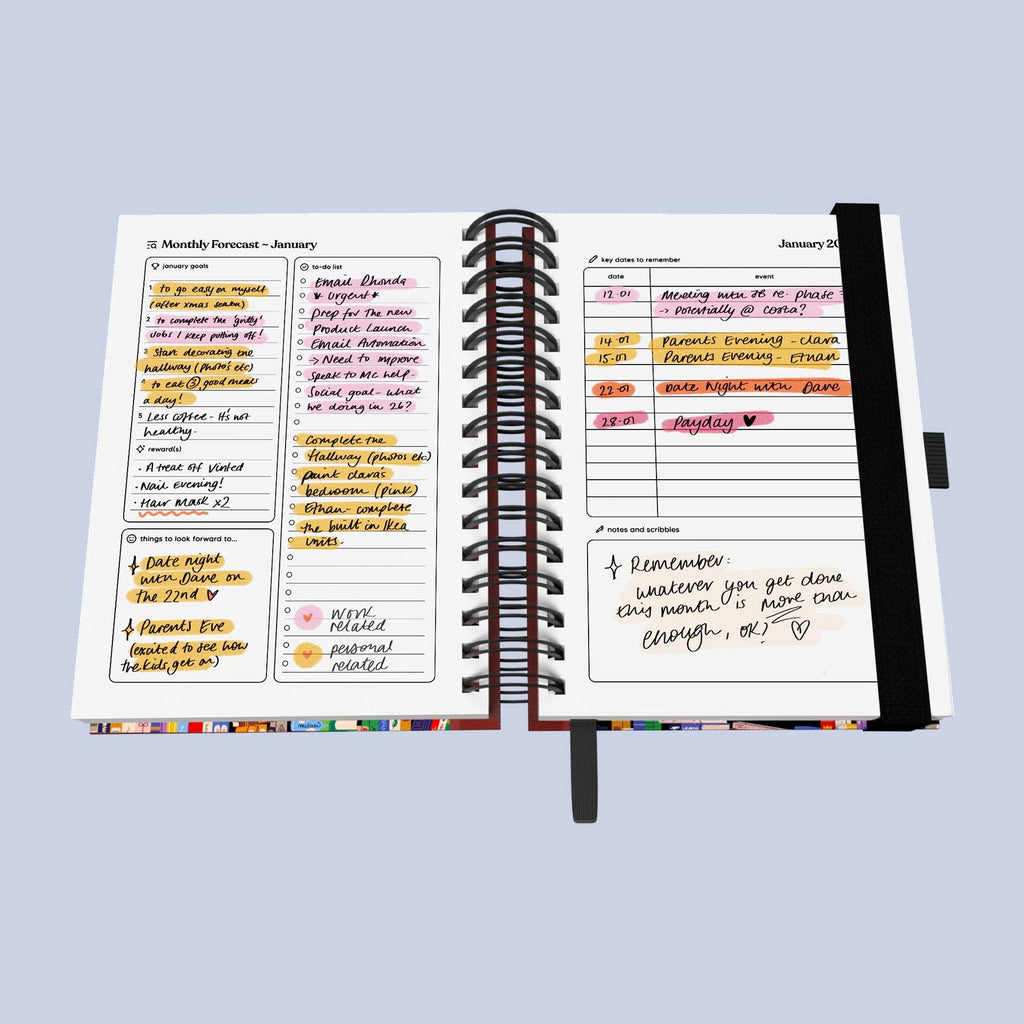 Monthly Forecast ~ January
january goals
1 to go easy on myself
(after xmas season)
2 to complete the 'gritty'
jobs I keep putting off!
3 Start decorating the
hallway (photos etc)
4 to eat ③ good meals
a day!
5 Less coffee - It's not
healthy.
reward(s)
• A treat off Vinted
• Nail Evening!
• Hair Mask x2
things to look forward to...
Date night
with Dave on
the 22nd ♥
Parents Eve
(excited to see how
the kids get on)
to-do list
Email Rhonda
* Urgent *
Prep for the new
Product Launch
Email Automation
→ Need to improve
Speak to Mc help -
Social goal - what
we doing in 26?
Complete the
Hallway (photos etc)
paint clara's
bedroom (pink)
Ethan - complete
the built in Ikea
units.
work
related
personal
related
January 20
key dates to remember
date event
12.01 Meeting with JB re. phase
→ Potentially @ costa?
14-01 Parents Evening - clara
15-01 Parents Evening - Ethan
22-01 Date Night with Dave
28-01 Payday ♥
notes and scribbles
Remember:
whatever you get done
this month is more than
enough, OK?